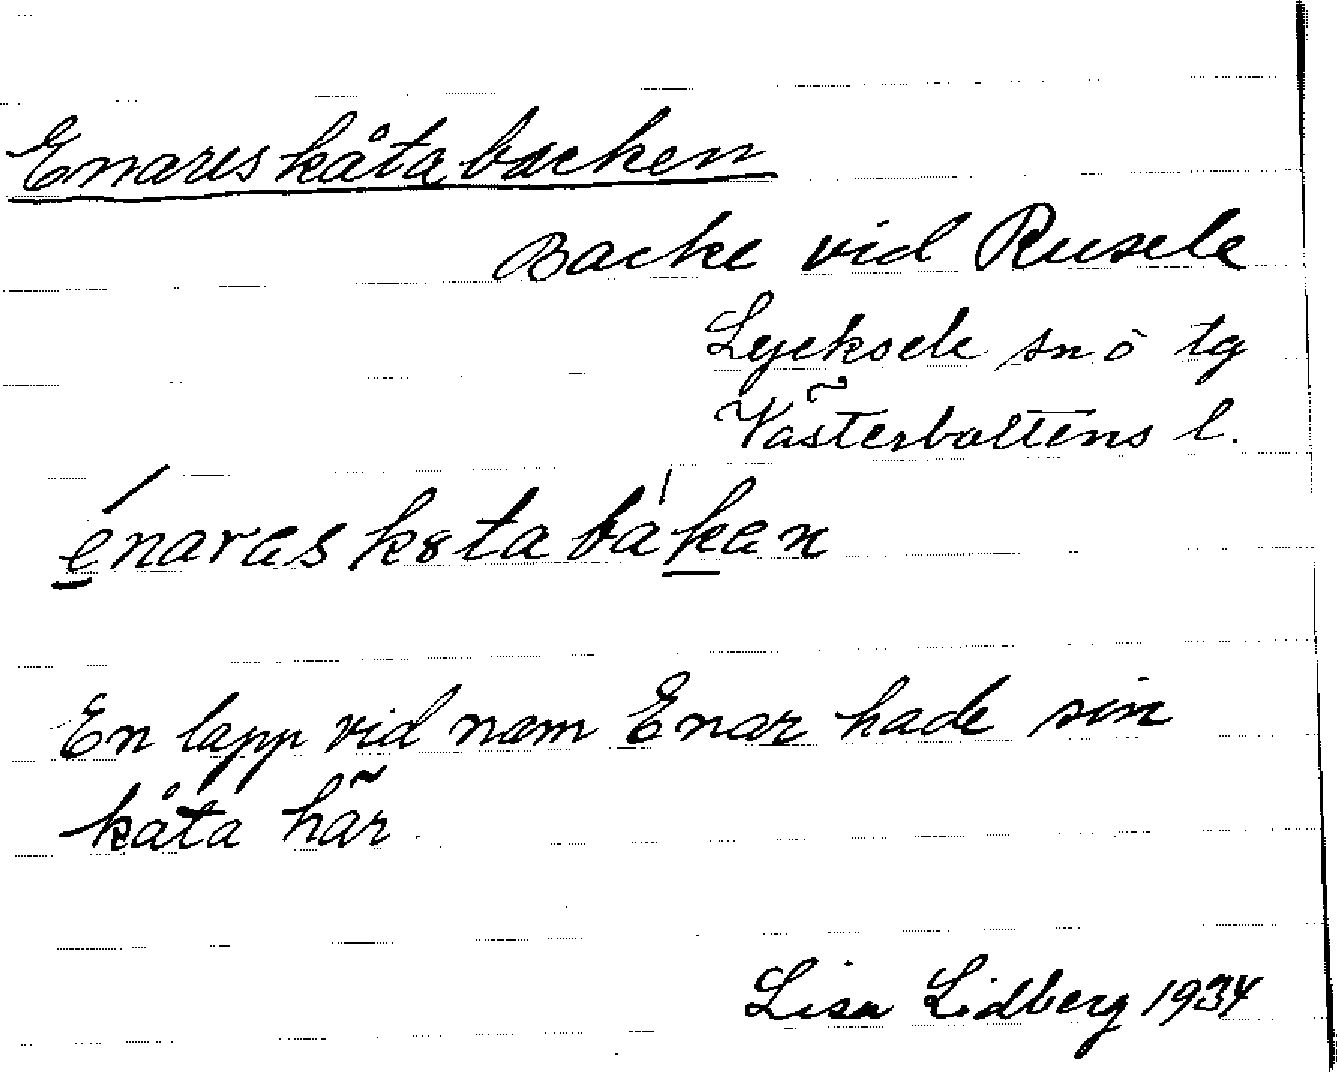 Enares kåtabacken
Backe vid Rusele
Lycksele sn o tg
Västerbottens l.
enaras kota bakan
En lapp vid namn Enar hade sin
kåta här
Lisa Lidberg 1934